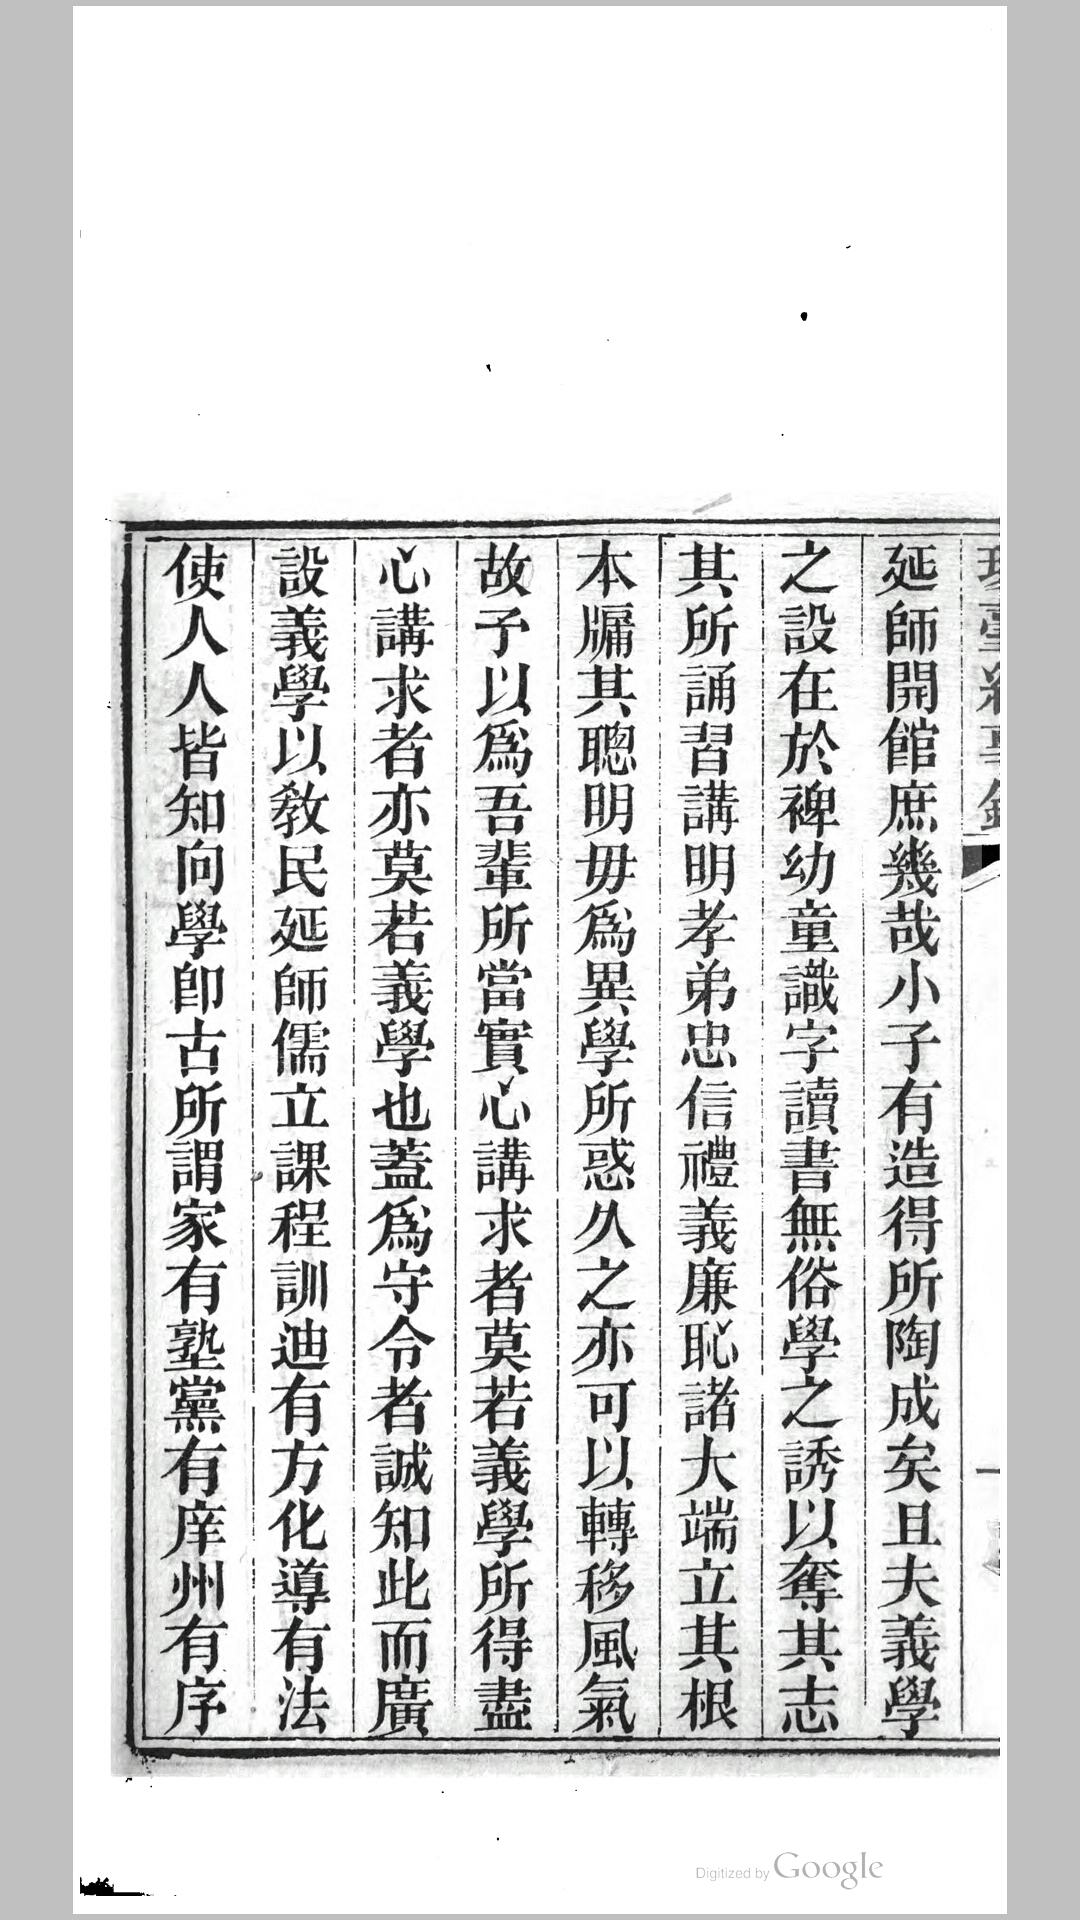 延師開館庶幾哉小子有造得所陶成矣且夫義學
之設在於裨幼童識字讀書無俗學之誘以奪其志
其所誦習講明孝弟忠信禮義廉恥諸大端立其根
本牖其聰明毋爲異學所惑久之亦可以轉移風氣
故予以爲吾輩所當實心講求者莫若義學所得盡
心講求者亦莫若義學也蓋爲守令者誠知此而廣
設義學以教民延師儒立課程訓迪有方化導有法
使人人皆知向學卽古所謂家有塾黨有庠州有序
Digitized by Google